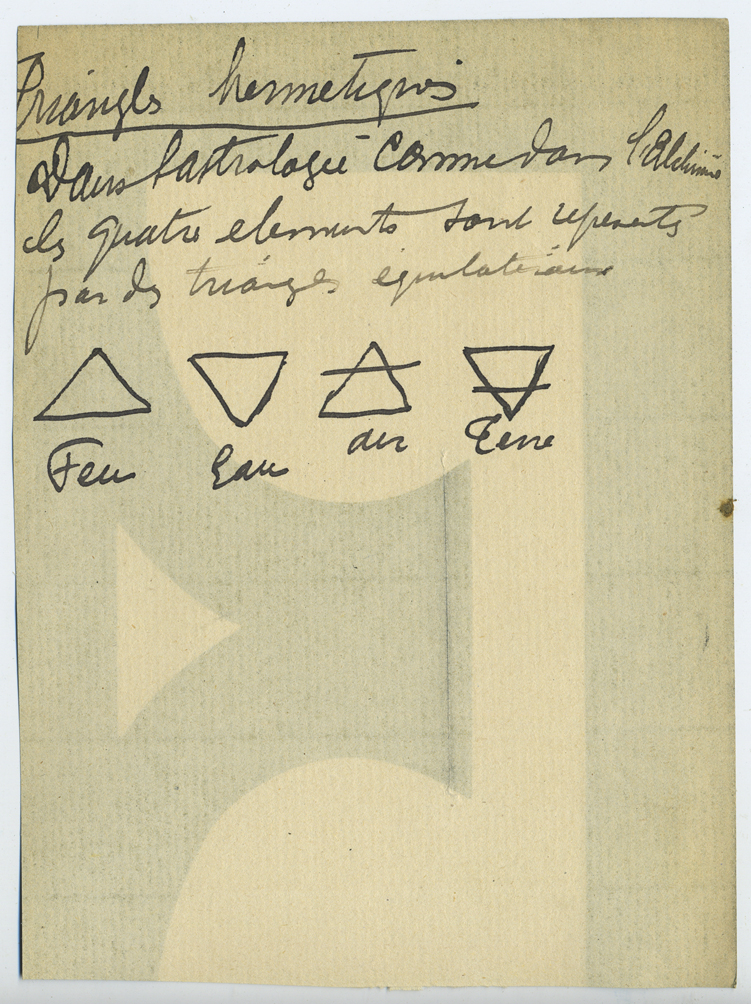 Triangles hermetiques
Dans l'astrologie comme dans l'Alchimie
les quatre elements sont representés
par des triangles equilateraux
Feu Eau air Terre